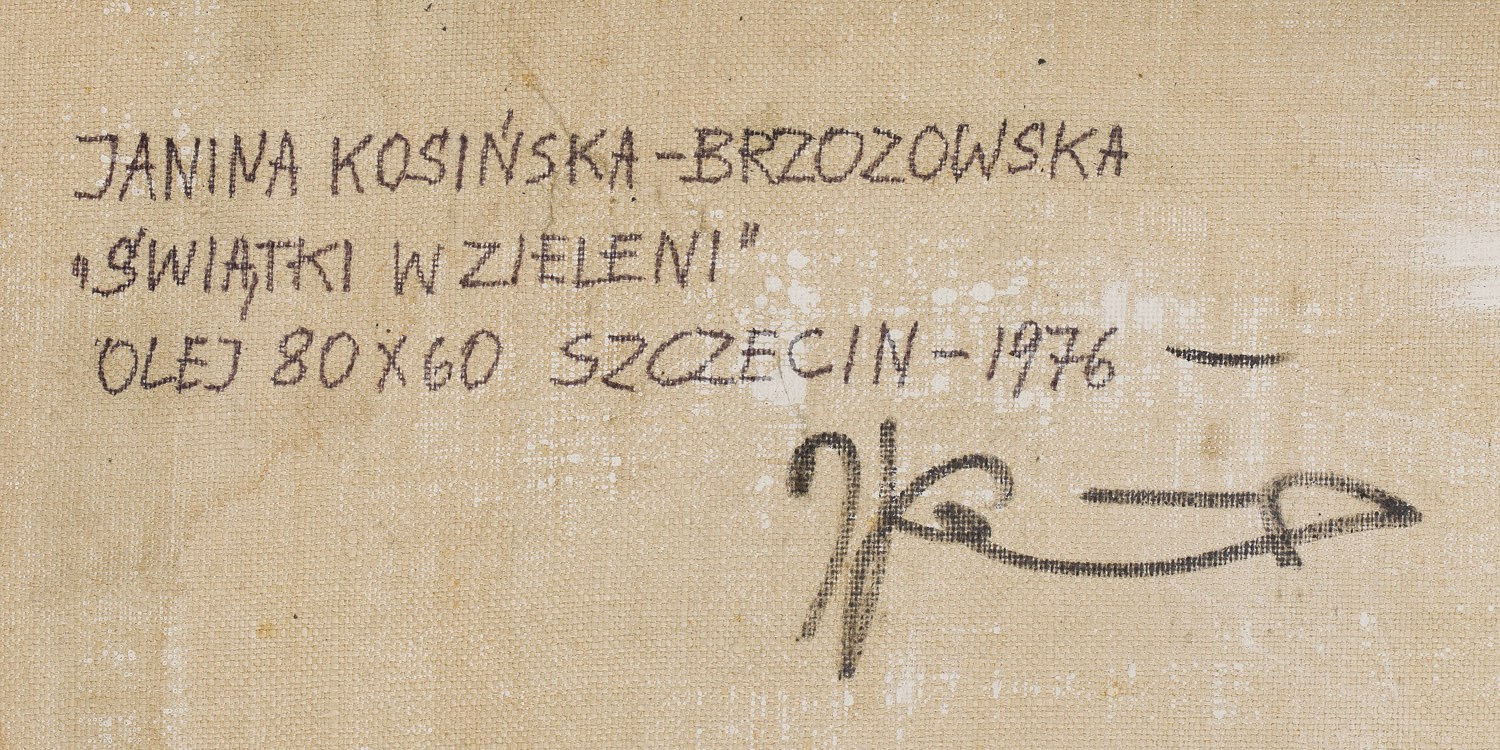 JANINA KOSIŃSKA-BRZOZOWSKA
„ŚWIĄTKI W ZIELENI”
OLEJ 80X60 SZCZECIN-1976 —